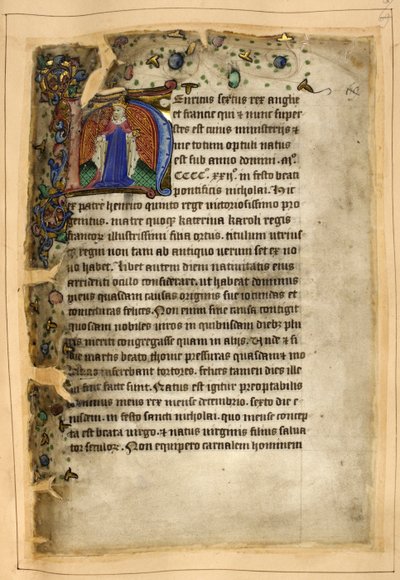 Henricus sextus rex anglie
et francie qui & nunc super
stes est cuius ministeriis &
me totum optuli natus
est sub anno domini . Mo
CCCCo. xxiio. in festo beati
pontificis nicholai. Hic
ex patre henrico quinto rege victoriosissimo pro
genitus. matre quoque katerina karoli regis
francorum illustrissimi filia ortus. titulum utrius
regni non tam ab antiquo verum set ex no
uo habet. Libet autem diem natiuitatis eius
attentiori oculo considerare. ut habeat dominus
meus quasdam causas originis sue iocundas et
coniecturas felices. Non enim sine causa contigit
quosdam nobiles viros in quibusdam diebus plu
ris meriti congregasse quam in aliis. Unde & si
die martis beato thome pressuras quasdam & mo
inserebant tortores. felices tamen dies ille
facte sunt. Natus est igitur preoptabilis
dominus meus rex mense decembrio. sexto die e
iusdem. in festo sancti nicholai. quo mense concep
ta est beata virgo. & natus virginis filius salua
tor seculorum. Non equipero carnalem hominem